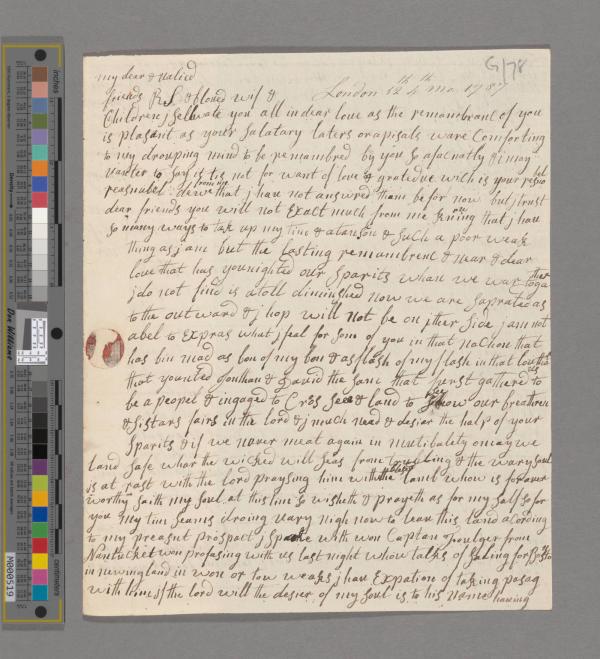 G/78
my dear & valied
friends R J & bloved wif &
London 12th 4th mo 178
Children j Sellvate you all in dear love as the remambranc of you
is plasant as your Salatary laters or apisals ware Comforting
to my drouping mind to be remambred by you so afacnatly & i may
vanter to say is tis not for want of love & gratedue with is your resno bel
reasnabel dews from me that j have not answred tham be for now but j trust
dear friends you will not Exact much from me knoing that j have
so many ways to tak up my time & atanson & Such a poor weak
thing as j am but the lasting remambrenc & near & dear
love that has younighted our Sparits whan we war togather
j do not find is atoll diminshed now we are Saprated as
to the outward & j hop will not be on ither Side j am not
abel to Expras what j feal for som of you in that nachon that
has bin mad as bon of my bon & as flash of my flash in that lov that
that younited Jonthan & david the sam that furst gathered us to
be a peopel & ingaged to Cros Seas & land to see how our breathren
& Sistars fairs in the lord & j much nead & desiar the halp of your
Sparits & if we never meat again in mutibalaty o may we
land Safe whar the wicked will Seas from trubling & the wary Soul
is at rast with the lord praysing him with the blased lamb whow is for aver
worthy saith my Soul at this time so wisheth & prayeth as for my Self so for
you my tim Seams droing vary nigh now to leav this land acording
to my preasnt prospact j spoake with won Captan Foulger from
Nantucket won profasing with us last night whow talks of Saling for Bosto
in newingland in won or tow weaks j hav Expation of taking pasag
with him if the lord will the desier of my Soul is to his name having
Don Williams
inches
centimeters
M000519